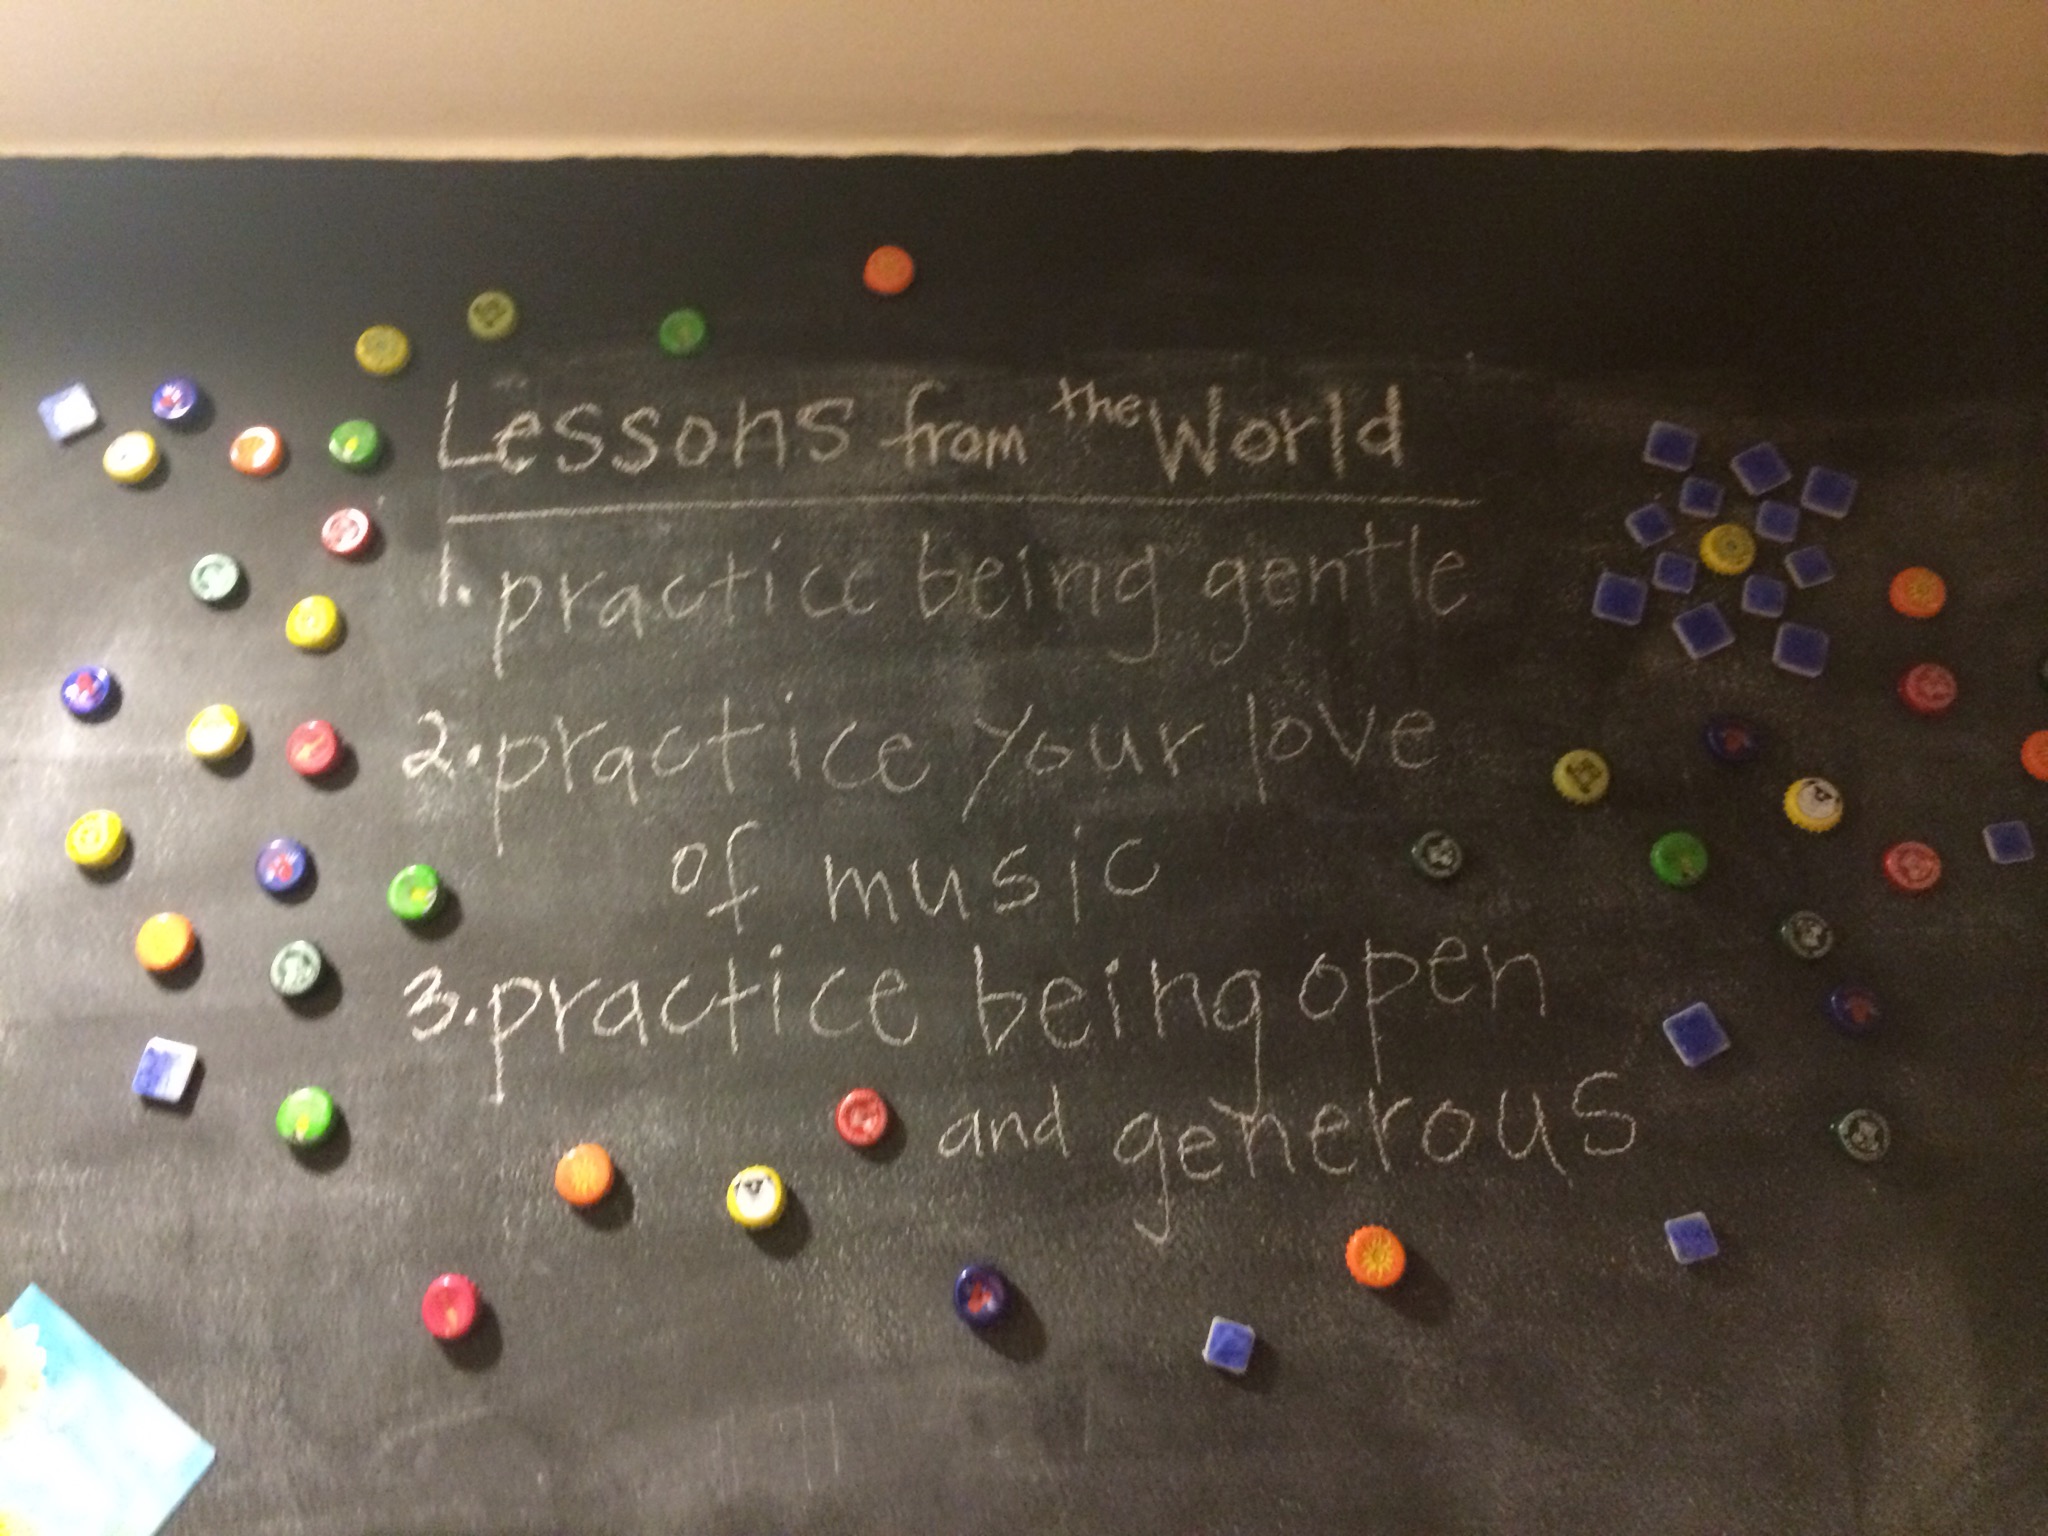 Lessons from the World
1. practice being gentle
2. practice your love
of music
3. practice being open
and generous